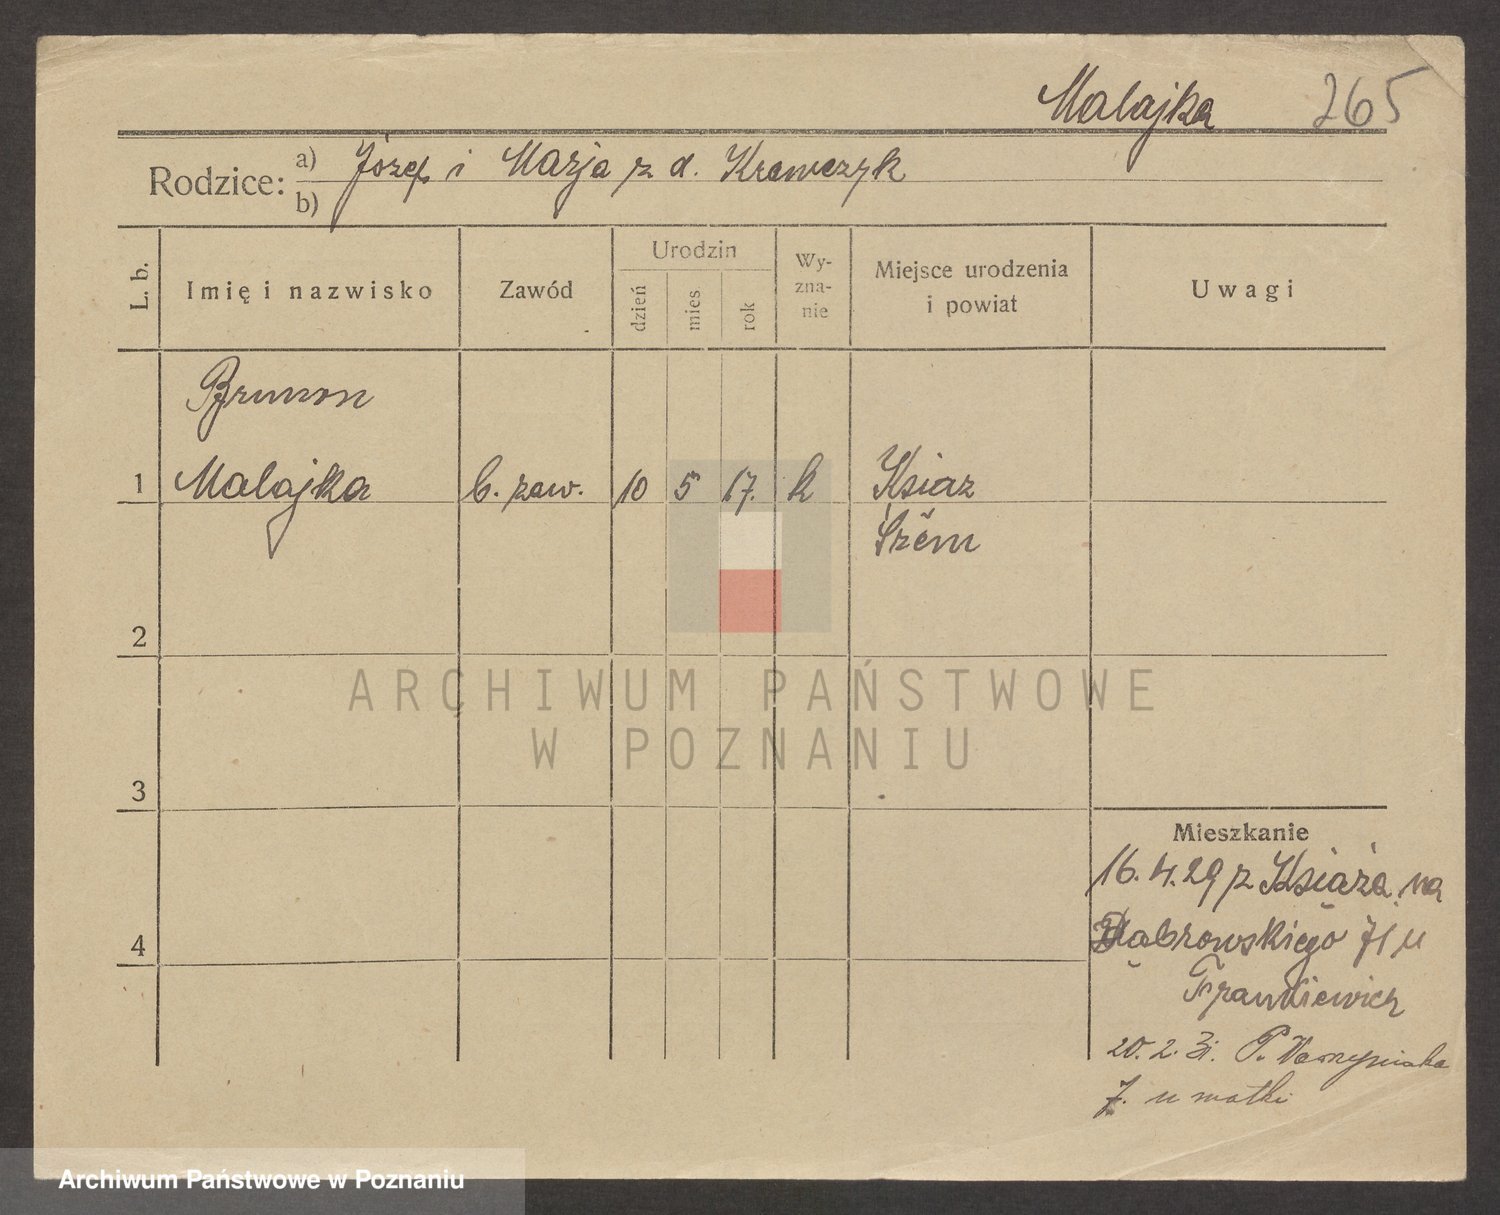 Malajka 265
Rodzice: a) Józef i Marja z d. Krawczyk
b)
L. b. Imię i nazwisko Zawód Urodzin dzień mies. rok Wyznanie Miejsce urodzenia i powiat Uwagi
Brunon
1 Malajka b. zaw. 10 5 17. k Ksiaz
Śrem
2
ARCHIWUM PAŃSTWOWE
W POZNANIU
3
Mieszkanie
16.4.29 z Książa na
4 Dąbrowskiego 71 u
Frankiewicz
20.2.31. P.
7. u matki
Archiwum Państwowe w Poznaniu